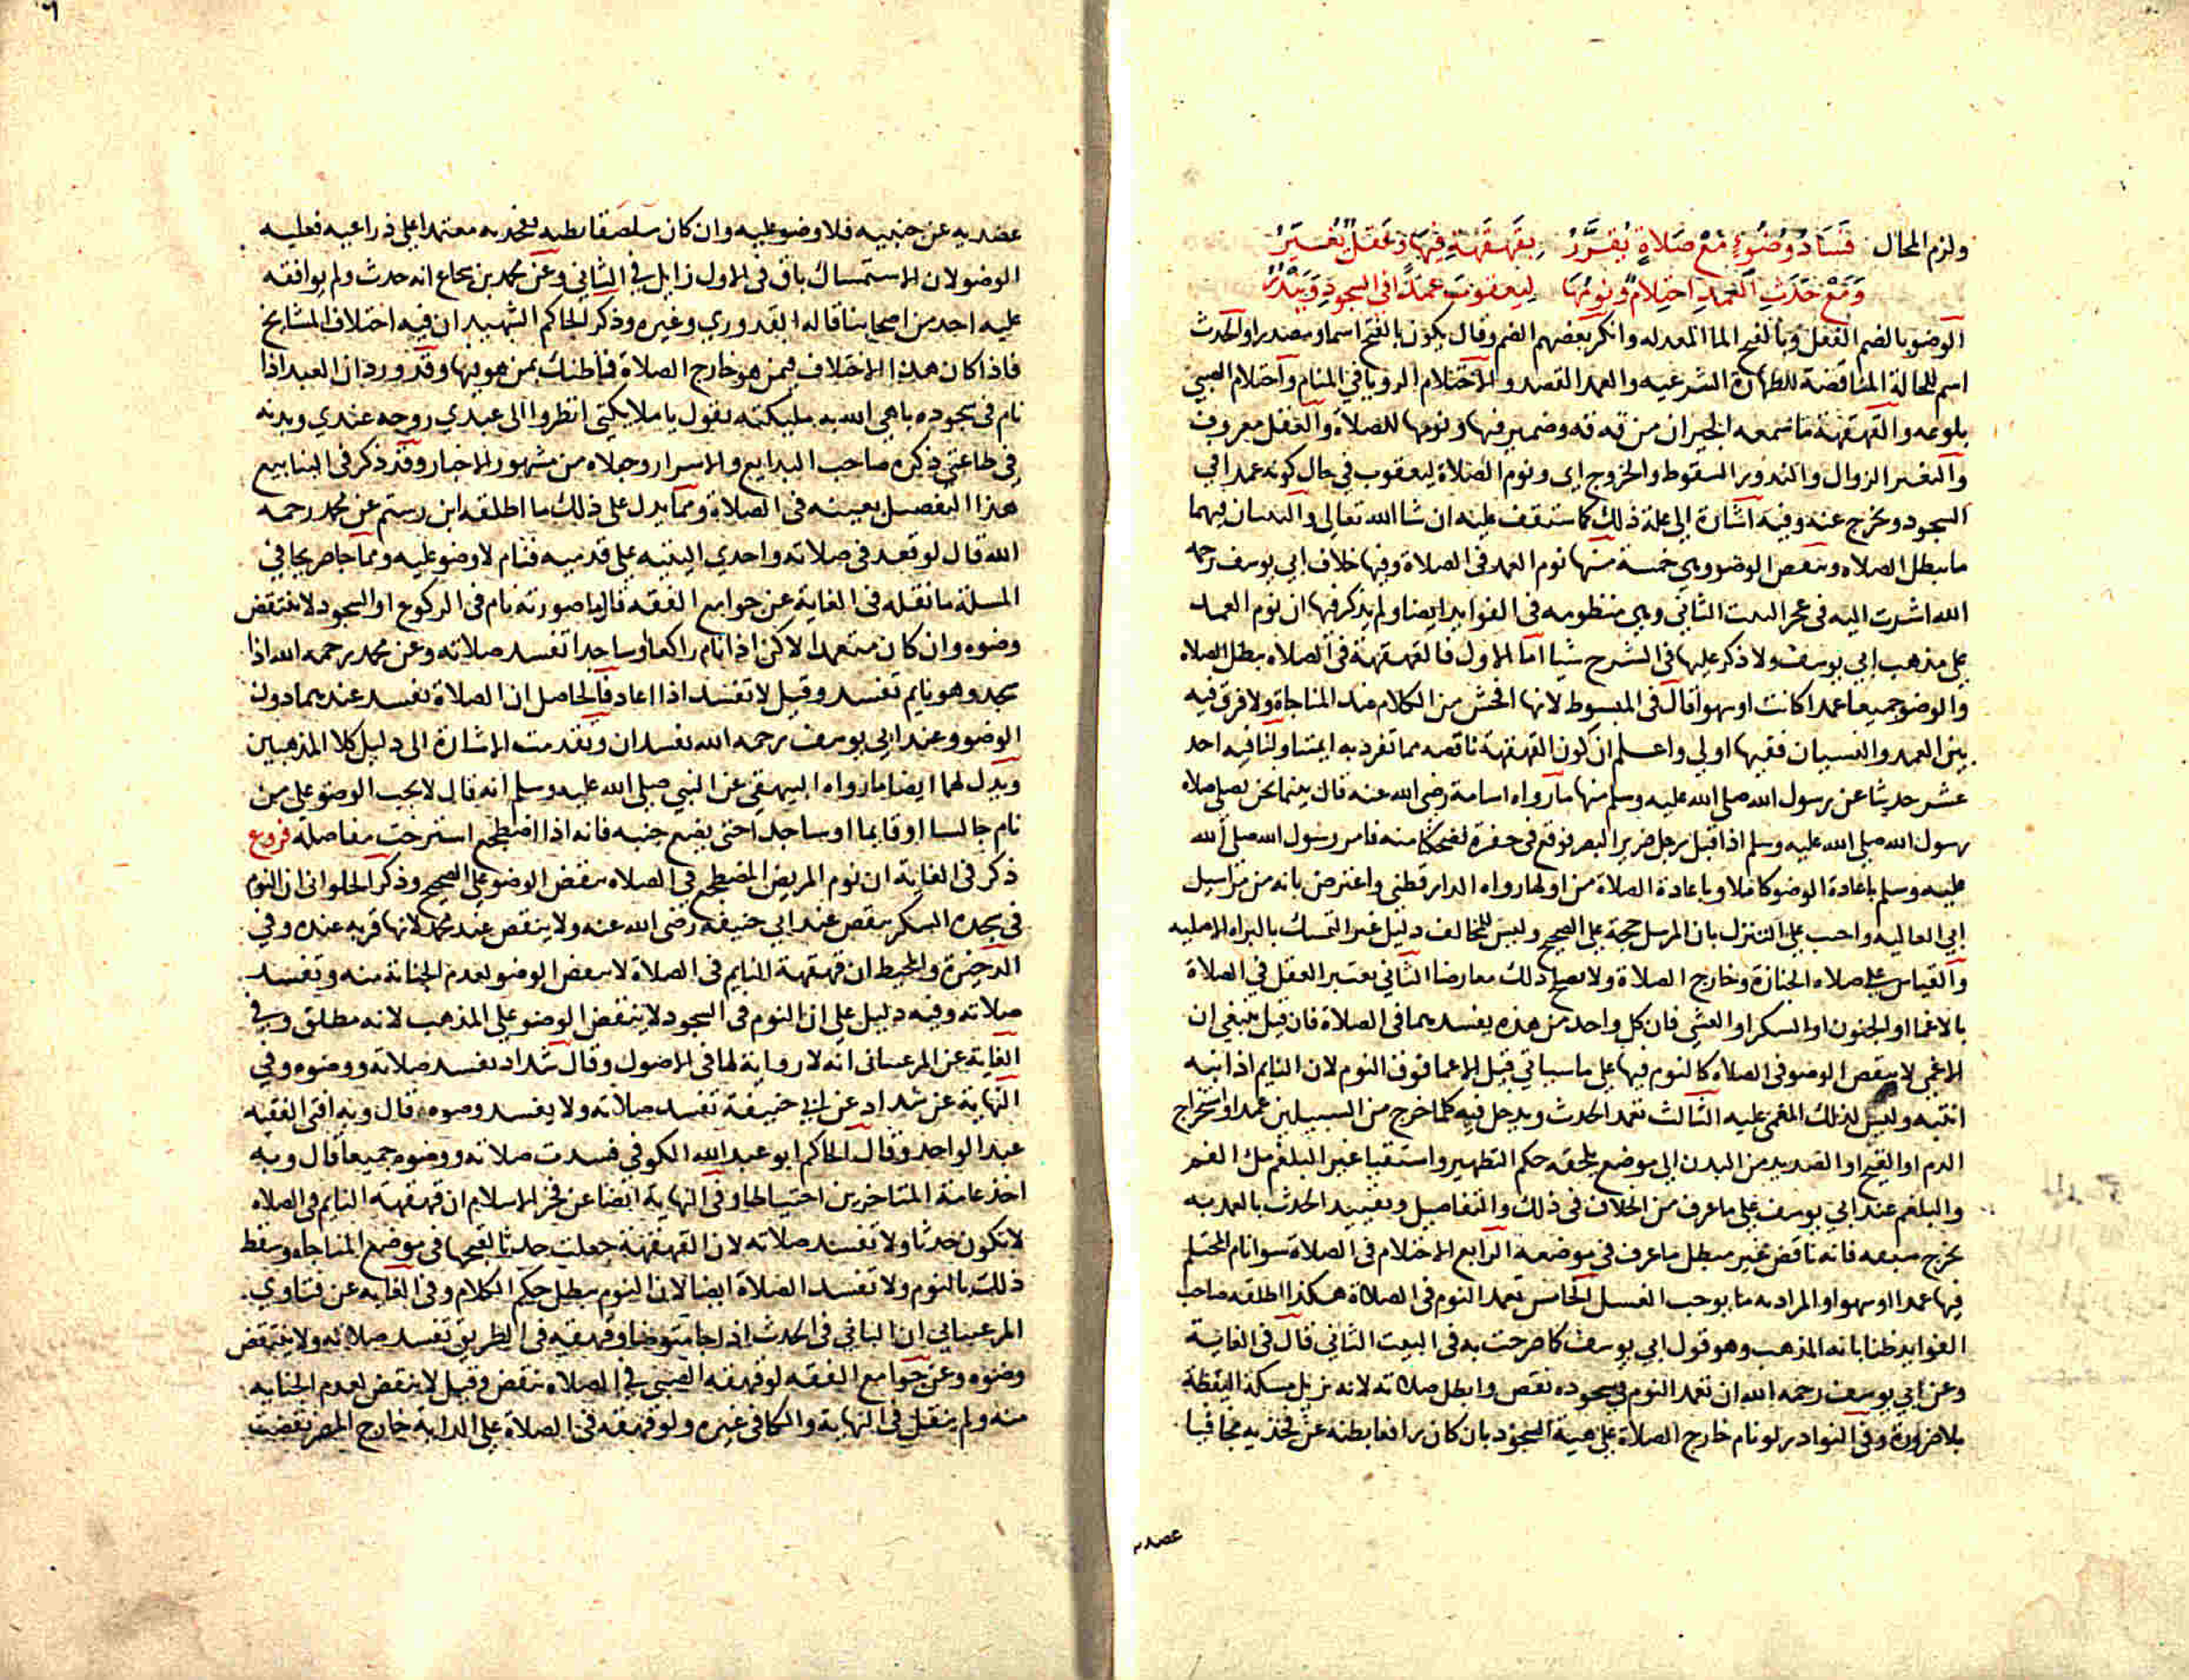 ولزم المحال فساد وضوء مع صلاة يقرر بقهقهة فيها وعقل يغير
ومع حدث العمد احتلام ونومها ليعقوب عمدا في السجود ويندر
الوضو بالضم الفعل وبالفتح الما المعد له وانكر بعضهم الضم وقال يكون بالفتح اسما ومصدرا والحدث
اسم للحالة المناقضة للطهارة الشرعيه والعمد القصد والاحتلام الرويا في المنام واحتلام الصبي
بلوغه والقهقهة ما سمعه الجيران من قه قه وضمير فيها ونومها للصلاة والعقل معروف
والتغير الزوال والندور السقوط والخروج اي ونوم الصلاة ليعقوب في حال كونه عمدا في
السجود ويخرج عنه وفيه اشارة الى علة ذلك كما ستقف عليه ان شا الله تعالى والبيتان فيهما
ما يبطل الصلاه وينقض الوضو وهي خمسة منها نوم العمد في الصلاة وفيها خلاف ابي يوسف رحمه
الله اشرت اليه في عجز البيت الثاني وهي منظومه في الفوايد ايضا ولم يذكر فيها ان نوم العمد
على مذهب ابي يوسف ولا ذكر عليها في الشرح شيا اما الاول فالقهقهة في الصلاه يبطل الصلاه
والوضو جميعا عمدا كانت او سهوا قال في المبسوط لانها افحش من الكلام عند المناجاة ولا فرق فيه
بين العمد والنسيان فقيها اولى واعلم ان كون القهقهة ناقصه مما تفرد به ايمتنا ولنا فيه احد
عشر حديثا عن رسول الله صلى الله عليه وسلم منها ما رواه اسامة رضي الله عنه قال بينما نحن نصلي صلاه
رسول الله صلى الله عليه وسلم اذا قبل رجل ضرير البصر فوقع في حفرة فضحكنا منه فامر رسول الله صلى الله
عليه وسلم باعادة الوضو كاملا وباعادة الصلاة من اولها رواه الدارقطني واعترض بانه من مراسيل
ابي العاليه واجيب على التنزل بان المرسل حجة على الصحيح وليس للمخالف دليل غير التمسك بالبراه الاصليه
والقياس على صلاه الجنازة وخارج الصلاة ولا يصح ذلك معارضا الثاني يعتبر العقل في الصلاة
بالاغما او الجنون او السكر او الغشي فان كل واحد من هذه يفسدهما في الصلاة فان قيل ينبغي ان
الاغمي لا ينقض الوضو في الصلاه كالنوم فيها على ما سياتي قيل الاغما فوق النوم لان النايم اذا انبه
انتبه وليس لذلك المغمى عليه الثالث تعمد الحدث ويدخل فيه كلما خرج من السبيلين عمدا واستخراج
الدم او القيح او الصديد من البدن الى موضع يلحقه حكم التطهير واستقيا غير البلغم مل الفم
والبلغم عند ابي يوسف على ما عرف من الخلاف في ذلك والتفاصيل وتقييد الحدث بالعمد به
يخرج سبقه فانه ناقض غير مبطل ما عرف في موضعه الرابع الاحتلام في الصلاة سوا نام المحتلم
فيها عمدا او سهوا والمراد به ما يوجب الغسل الخامس تعمد النوم في الصلاة هكذا اطلقه صاحب
الفوايد ظنا بانه المذهب وهو قول ابي يوسف كما صرحت به في البيت الثاني قال في الغاية
وعن ابي يوسف رحمه الله ان تعمد النوم في سجوده نقض وابطل صلاته لانه يزيل مسكة اليقظة
بلا ضرورة وفي النوادر لو نام خارج الصلاة على هيئة السجود بان كان رافعا بطنه عن فخذيه مجافيا
عضديه
٦
عضديه عن جنبيه فلا وضو عليه وان كان ملصقا بطنه بفخذيه معتمدا على ذراعيه فعليه
الوضو لان الاستمساك باق في الاول زايل في الثاني وعن محمد بن شجاع انه حدث ولم يوافقه
عليه احد من اصحابنا قاله القدوري وغيره وذكر الحاكم الشهيد ان فيه اختلاف المشايخ
فاذا كان هذا الاختلاف فيمن هو خارج الصلاة فما ظنك بمن هو فيها وقد ورد ان العبد اذا
نام في سجوده باهي الله به مليكته يقول يا ملايكتي انظروا الى عبدي روحه عندي وبدنه
في طاعتي ذكره صاحب البدايع والاسرار وجعلاه من مشهور الاخبار وقد ذكر في الينابيع
هذا التفصيل بعينه في الصلاة ومما يدل على ذلك ما اطلقه ابن رستم عن محمد رحمه
الله قال لو قعد في صلاته واحدي اليتيه على قدميه فنام لا وضو عليه ومما جا صريحا في
المسلة ما نقله في الغاية عن جوامع الفقه قال ما صورته نام في الركوع او السجود لا ينتقض
وضوه وان كان متعمدا لاكن اذا نام راكعا او ساجدا تفسد صلاته وعن محمد رحمه الله اذا
سجد وهو نايم تفسد وقيل لا تفسد اذا اعاد فالحاصل ان الصلاة تفسد عندهما دون
الوضو وعند ابي يوسف رحمه الله تفسدان وتقدمت الاشارة الى دليل كلا المذهبين
ويدل لهما ايضا ما رواه البيهقي عن النبي صلى الله عليه وسلم انه قال لا يجب الوضو على من
نام جالسا او قايما او ساجدا حتى يضع جنبه فانه اذا اضطجع استرخت مفاصله فروع
ذكر في الغاية ان نوم المريض المضطجع في الصلاه ينقض الوضو على الصحيح وذكر الحلواني ان النوم
في سجدة الشكر ينقض عند ابي حنيفه رضي الله عنه ولا ينقض عند محمد لانها قربه عنده وفي
الدخيرة والمحيط ان قهقهة النايم في الصلاة لا ينقض الوضو لعدم الجناية منه وتفسد
صلاته وفيه دليل على ان النوم في السجود لا ينقض الوضو على المذهب لانه مطلق وفي
الغاية عن المرغيناني انه لا رواية لها في الاصول وقال شداد تفسد صلاته ووضوه وفي
النهاية عن شداد عن ابي حنيفة تفسد صلاته ولا يفسد وضوه قال وبه افتى الفقيه
عبد الواحد وقال الحاكم ابو عبد الله الكوفي فسدت صلاته ووضوه جميعا قال وبه
اخذ عامة المتاخرين احتياطا وفي النهاية ايضا عن فخر الاسلام ان قهقهة النايم في الصلاه
لا تكون حدثا ولا تفسد صلاته لان القهقهة جعلت حدثا لقبحها في موضع المناجاه وسقط
ذلك بالنوم ولا تفسد الصلاة ايضا لان النوم يبطل حكم الكلام وفي الغايه عن فتاوي
المرغيناني ان الباني في الحدث اذا جا متوضيا وقهقه في الطريق تفسد صلاته ولا ينتقض
وضوه وعن جوامع الفقه لو قهقه الصبي في الصلاه ينقض وقيل لا ينقض لعدم الجنايه
منه ولم ينقل في النهاية والكافي غيره ولو قهقه في الصلاة على الدابة خارج المصر نقضت